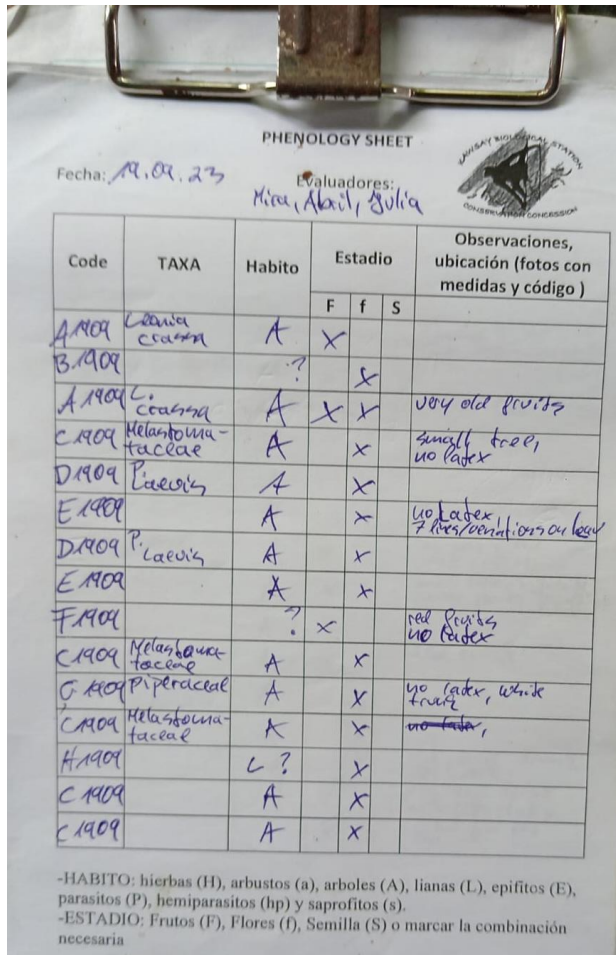 PHENOLOGY SHEET
KAWSAY BIOLOGICAL STATION
CONSERVATION CONCESSION
Fecha: 19.09.23
Evaluadores:
Mira, Abril, Julia
Code TAXA Habito Estadio Observaciones, ubicación (fotos con medidas y código )
F f S
A1909 Leonia crassa A X
B1909 ? X
A1909 L. crassa A X X very old fruits
C1909 Melastoma-taceae A X small tree, no latex
D1909 P. laevis A X
E1909 A X no latex, 7 lines/venations on leav
D1909 P. laevis A X
E1909 A X
F1909 ? X red fruits no latex
C1909 Melastoma-taceae A X
G1909 Piperaceae A X no latex, white
C1909 Melastoma-taceae A X
H1909 L ? X
C1909 A X
C1909 A X
-HABITO: hierbas (H), arbustos (a), arboles (A), lianas (L), epifitos (E),
parasitos (P), hemiparasitos (hp) y saprofitos (s).
-ESTADIO: Frutos (F), Flores (f), Semilla (S) o marcar la combinación
necesaria